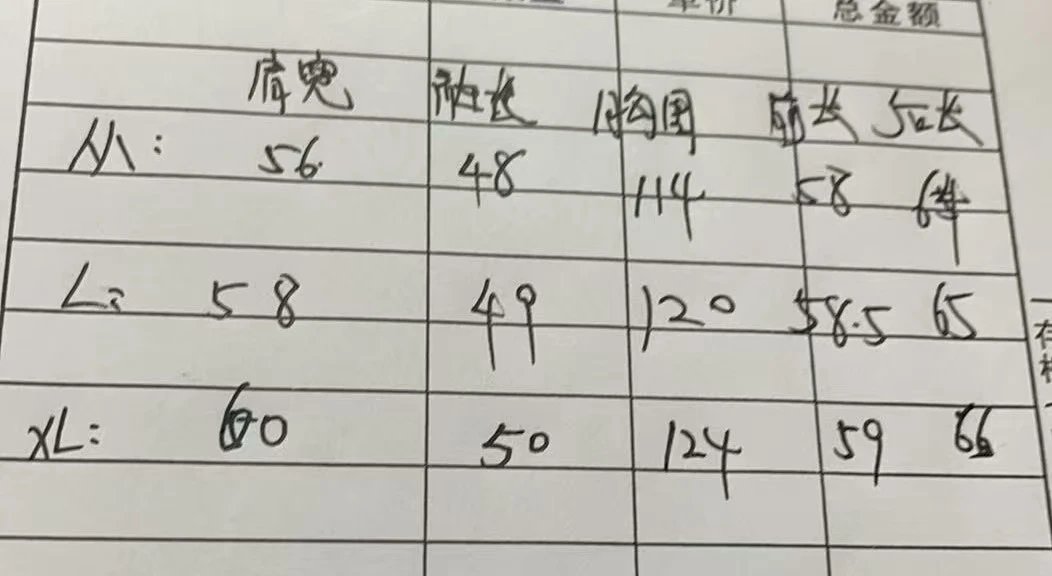 单价 总金额
肩宽 袖长 胸围 前长 后长
M: 56 48 114 58 64
L: 58 49 120 58.5 65
XL: 60 50 124 59 66